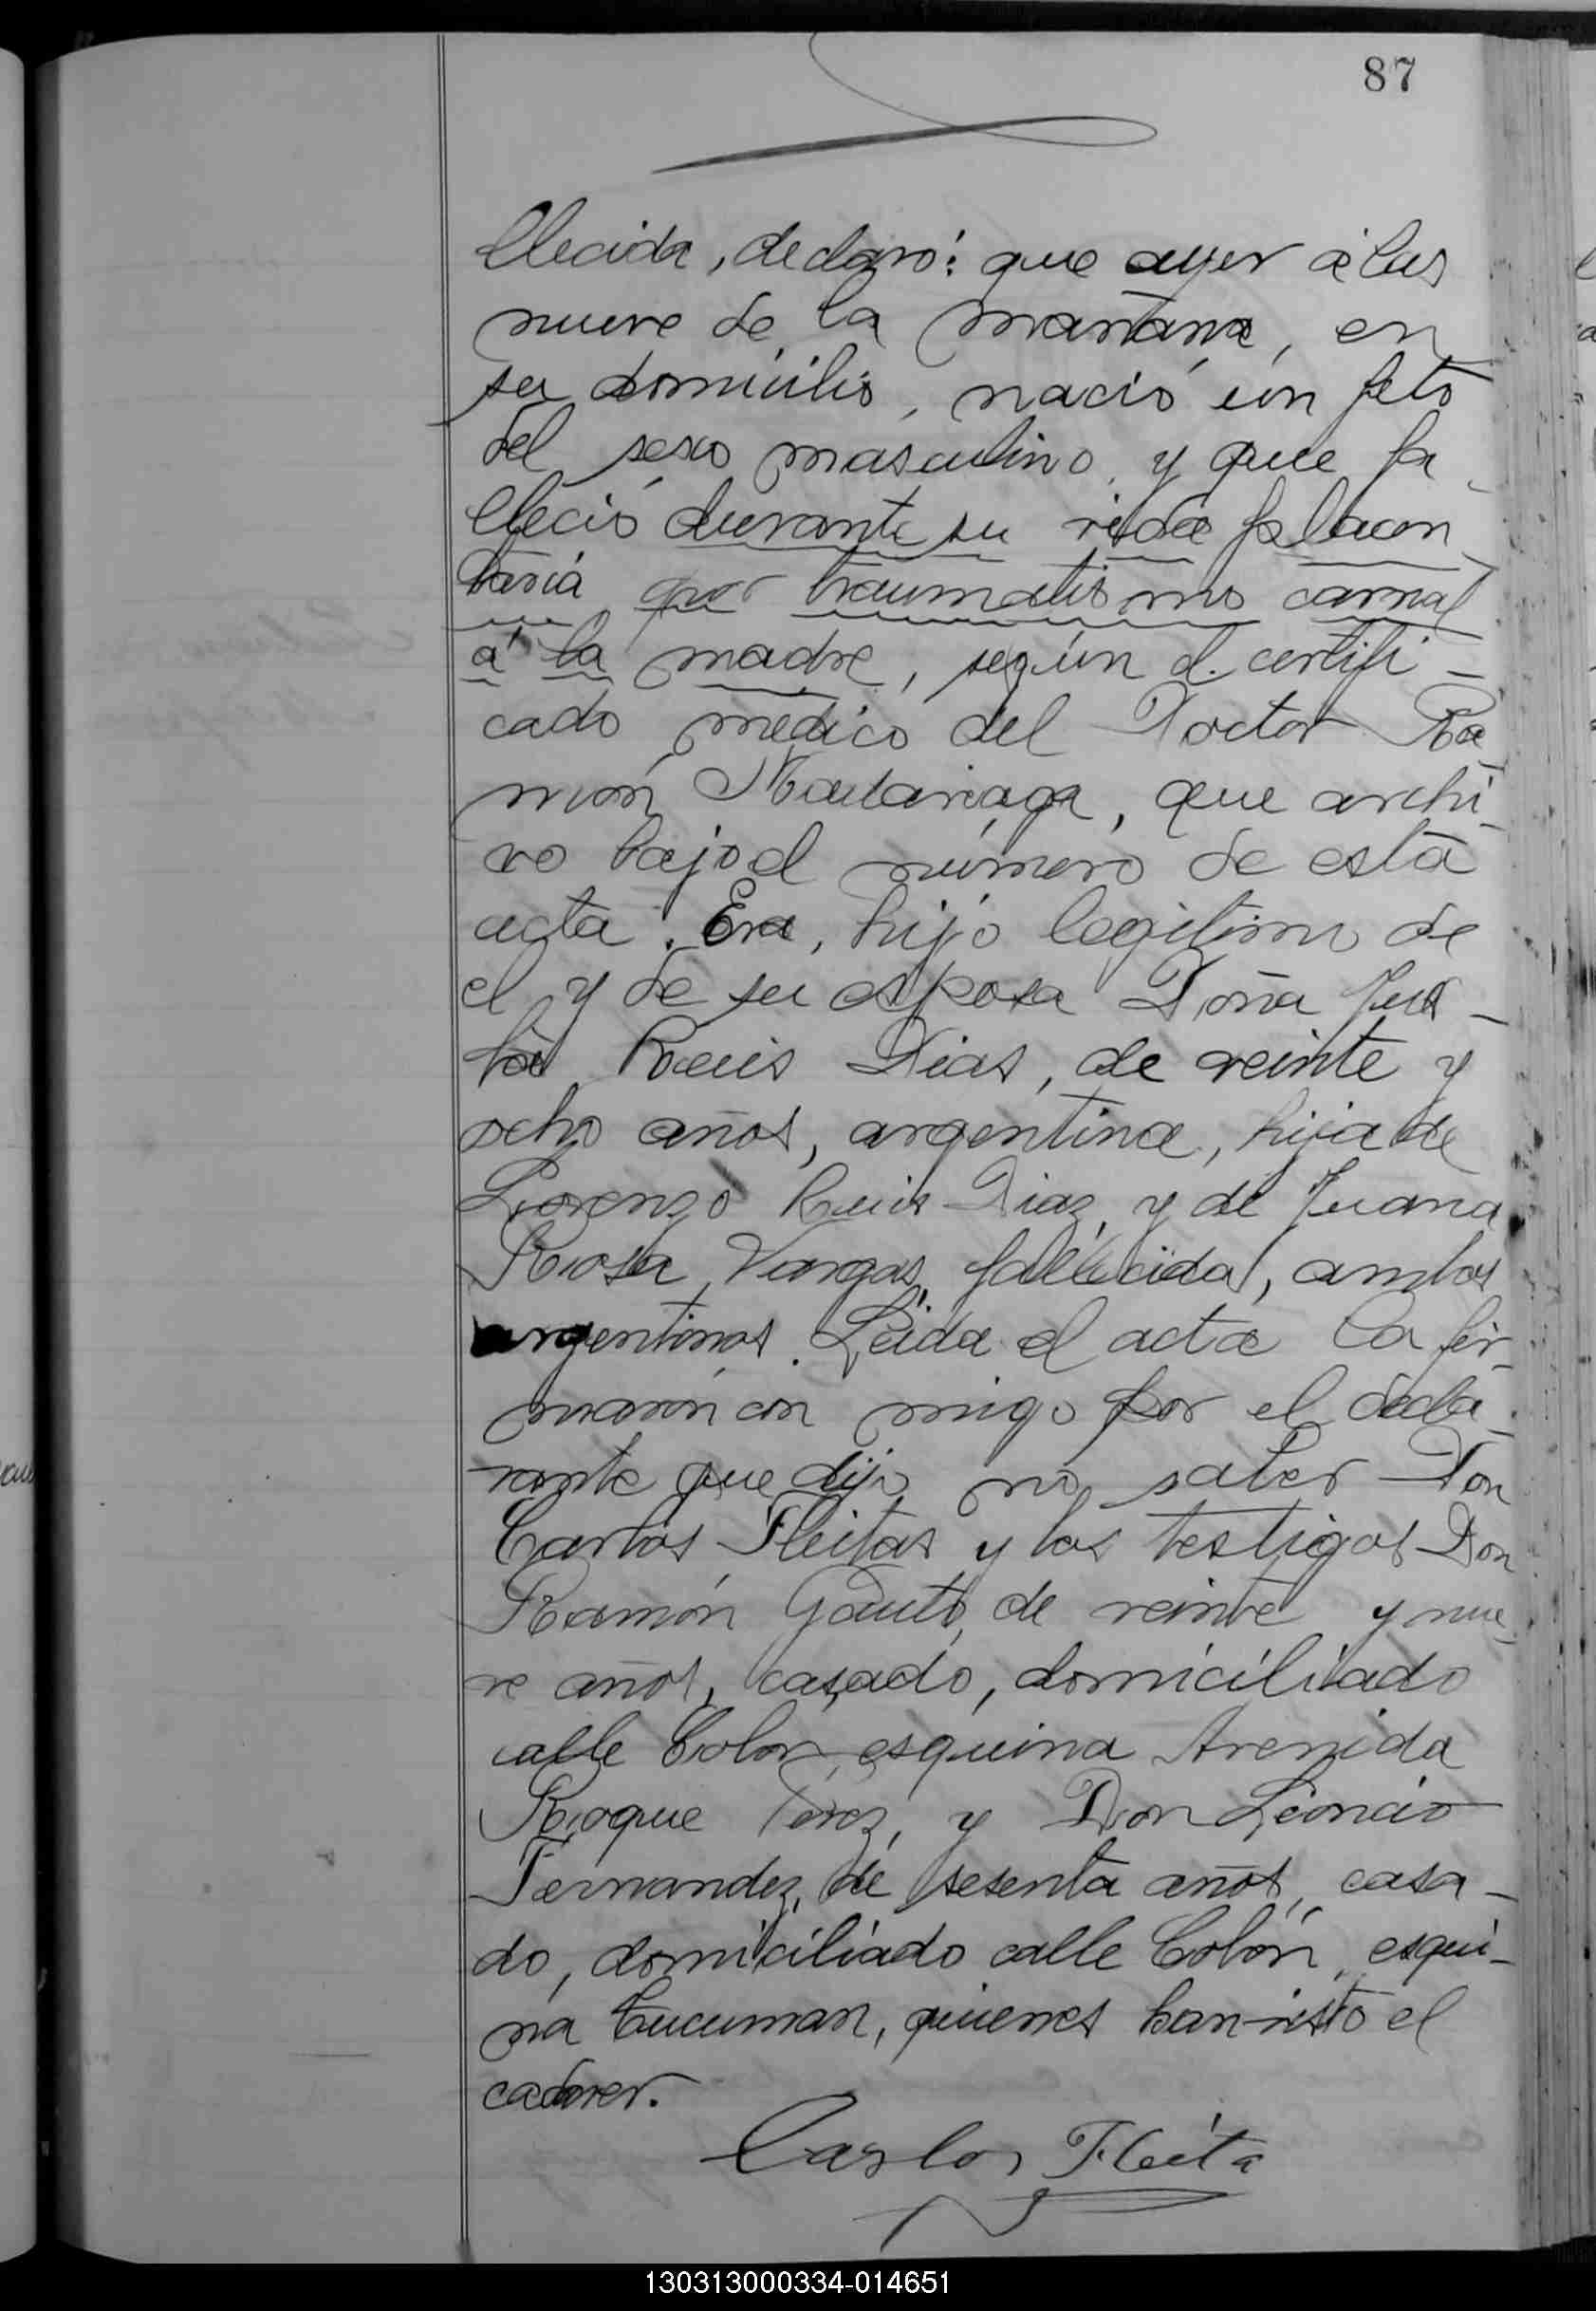 87
llecida, declaró: que ayer á las
nueve de la mañana, en
su domicilio, nació un feto
del sexo masculino, y que fa_
lleció durante su vida placen_
taria por traumatismo carnal
á la madre, según el certifi_
cado médico del Doctor Ra_
món Madariaga, que archi_
vo bajo el número de esta
acta. Era, hijo legitimo de
el y de su esposa Doña Jus_
ta Ruis Dias, de veinte y
ocho años, argentina, hija de
Lorenzo Ruis Diaz, y de Juana
Rosa Vargas, fallecida, ambos
argentinos. Leida el acta la fir_
maron con migo por el decla_
rante que dijo no saber Don
Carlos Fleitas y los testigos Don
Ramón Gauto, de veinte y nue_
ve años, casado, domiciliado
calle Colon, esquina Avenida
Roque Perez, y Don Leoncio
Fernandez, de sesenta años, casa_
do, domiciliado calle Colón, esqui_
na Tucuman, quienes han visto el
cadaver.
Carlos Fleita
130313000334-014651